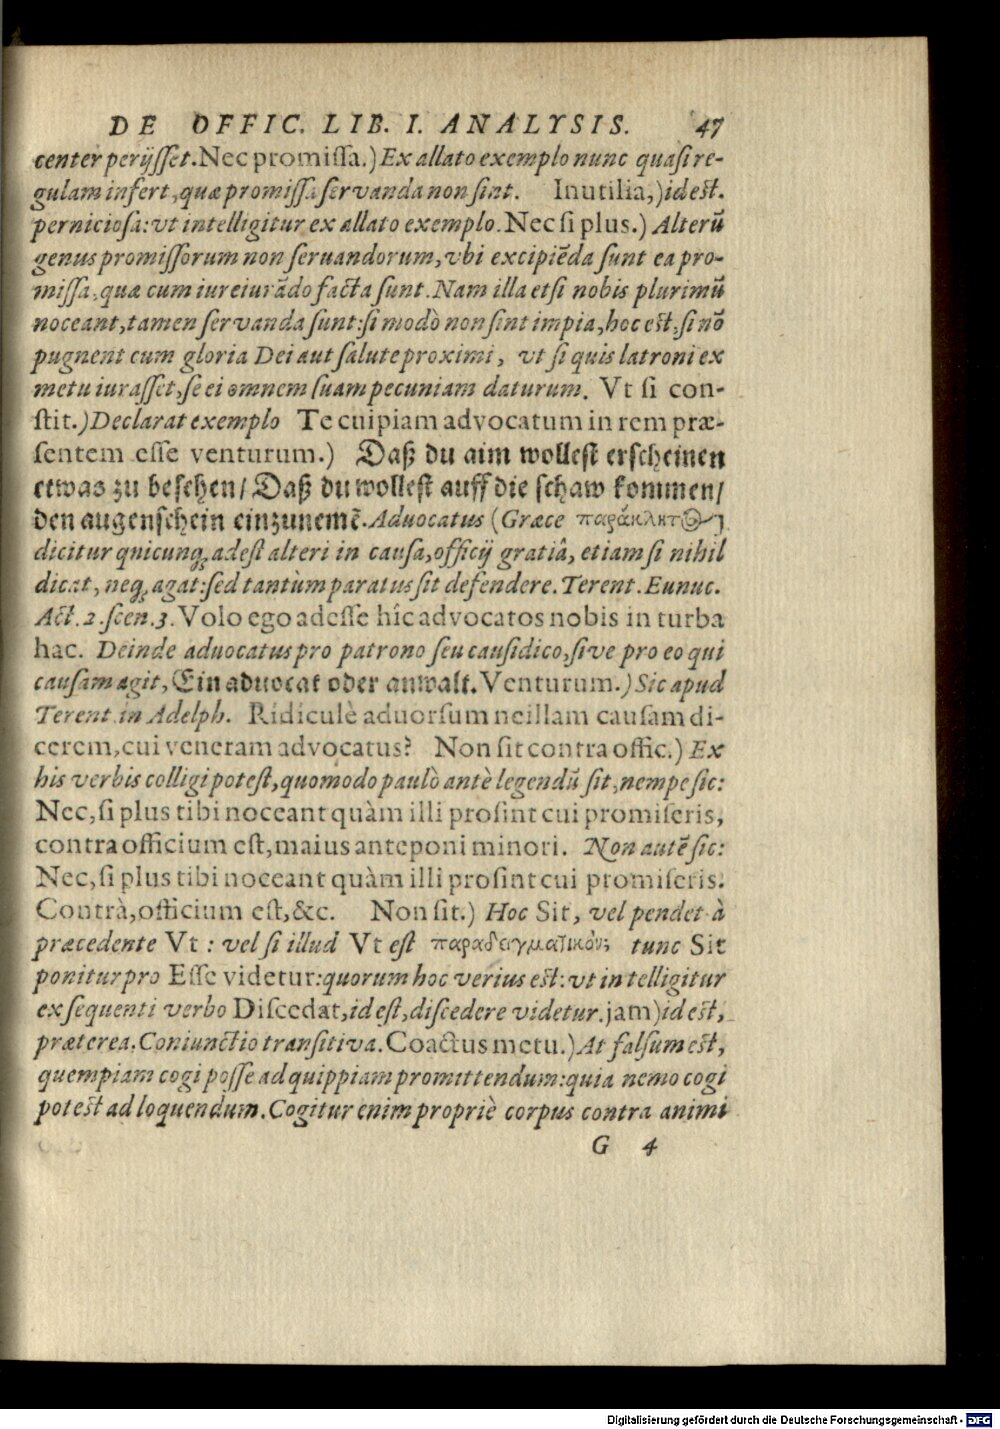 DE OFFIC. LIB. I. ANALYSIS. 47
center perijſſet. Nec promiſſa.) Ex allato exemplo nunc quaſi re-
gulam infert, quæ promiſſa ſervanda non ſint. Inutilia,) id eſt.
pernicioſa: vt intelligitur ex allato exemplo. Nec ſi plus.) Alterū
genus promiſſorum non ſeruandorum, vbi excipiēda ſunt ea pro-
miſſa, quæ cum iureiurādo facta ſunt. Nam illa etſi nobis plurimū
noceant, tamen ſervanda ſunt: ſi modò non ſint impia, hoc eſt, ſi nō
pugnent cum gloria Dei aut ſalute proximi, vt ſi quis latroni ex
metu iuraſſet, ſe ei omnem ſuam pecuniam daturum. Vt ſi con-
ſtit.) Declarat exemplo Te cuipiam advocatum in rem præ-
ſentem eſſe venturum.) Daß du aim wolleſt erſcheinen
etwas zu beſehen/ Daß du wolleſt auff die ſchaw kommen/
den augenſchein einzunemē. Aduocatus (Græce παράκλητος)
dicitur quicunq; adeſt alteri in cauſa, officij gratiâ, etiamſi nihil
dicat, neq; agat: ſed tantùm paratus ſit defendere. Terent. Eunuc.
Act. 2. ſcen. 3. Volo ego adeſſe hîc advocatos nobis in turba
hac. Deinde aduocatus pro patrono ſeu cauſidico, ſive pro eo qui
cauſam agit, Ein aduocat oder anwalt. Venturum.) Sic apud
Terent. in Adelph. Ridiculè aduorſum neillam cauſam di-
cerem, cui veneram advocatus? Non ſit contra offic.) Ex
his verbis colligi poteſt, quomodo paulò antè legendū ſit, nempe ſic:
Nec, ſi plus tibi noceant quàm illi proſint cui promiſeris,
contra officium eſt, maius anteponi minori. Non autē ſic:
Nec, ſi plus tibi noceant quàm illi proſint cui promiſeris.
Contrà, officium eſt, &c. Non ſit.) Hoc Sit, vel pendet à
præcedente Vt: vel ſi illud Vt eſt παραδειγματικόν, tunc Sit
ponitur pro Eſſe videtur: quorum hoc verius eſt: vt intelligitur
ex ſequenti verbo Diſcedat, id eſt, diſcedere videtur. jam) id eſt,
præterea. Coniunctio tranſitiva. Coactus metu.) At falſum eſt,
quempiam cogi poſſe ad quippiam promittendum: quia nemo cogi
poteſt ad loquendum. Cogitur enim propriè corpus contra animi
G 4
Digitalisierung gefördert durch die Deutsche Forschungsgemeinschaft - DFG